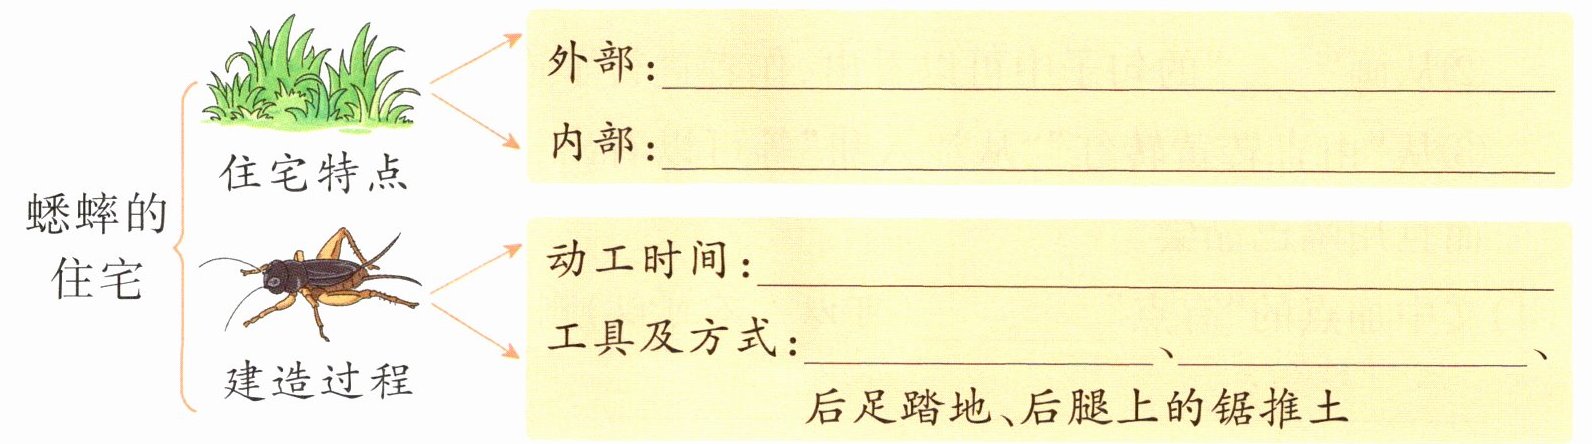 蟋蟀的
住宅
住宅特点
外部：
内部：
建造过程
动工时间：
工具及方式：、、
后足踏地、后腿上的锯推土